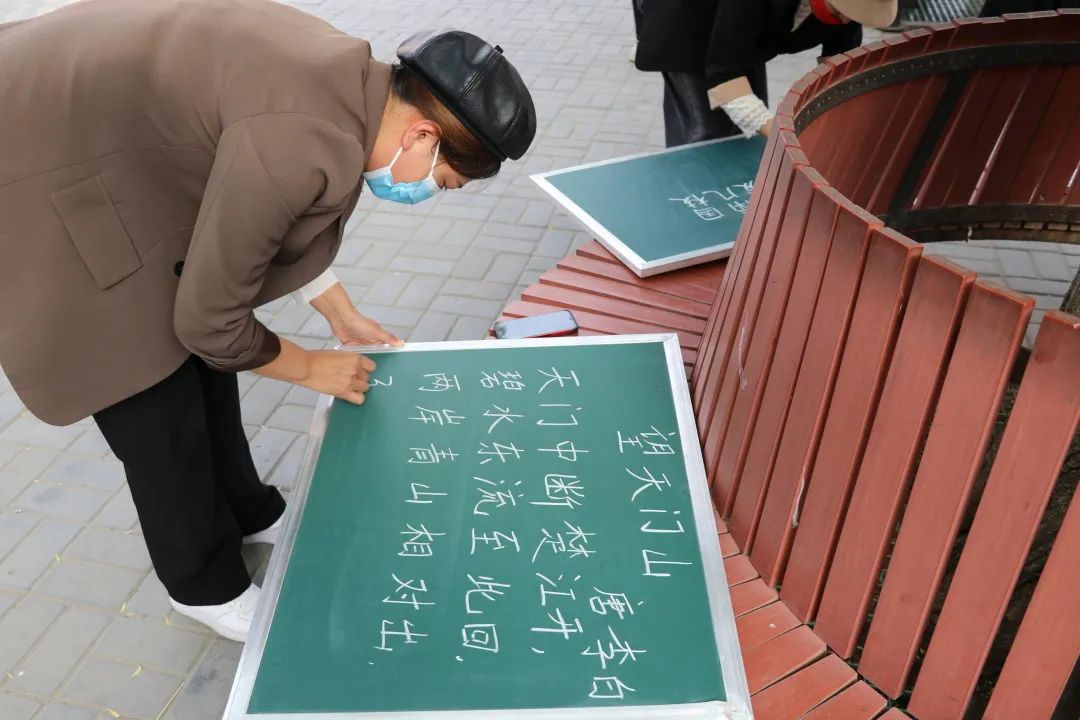 望天门山
唐李白
天门中断楚江开,
碧水东流至此回.
两岸青山相对出,